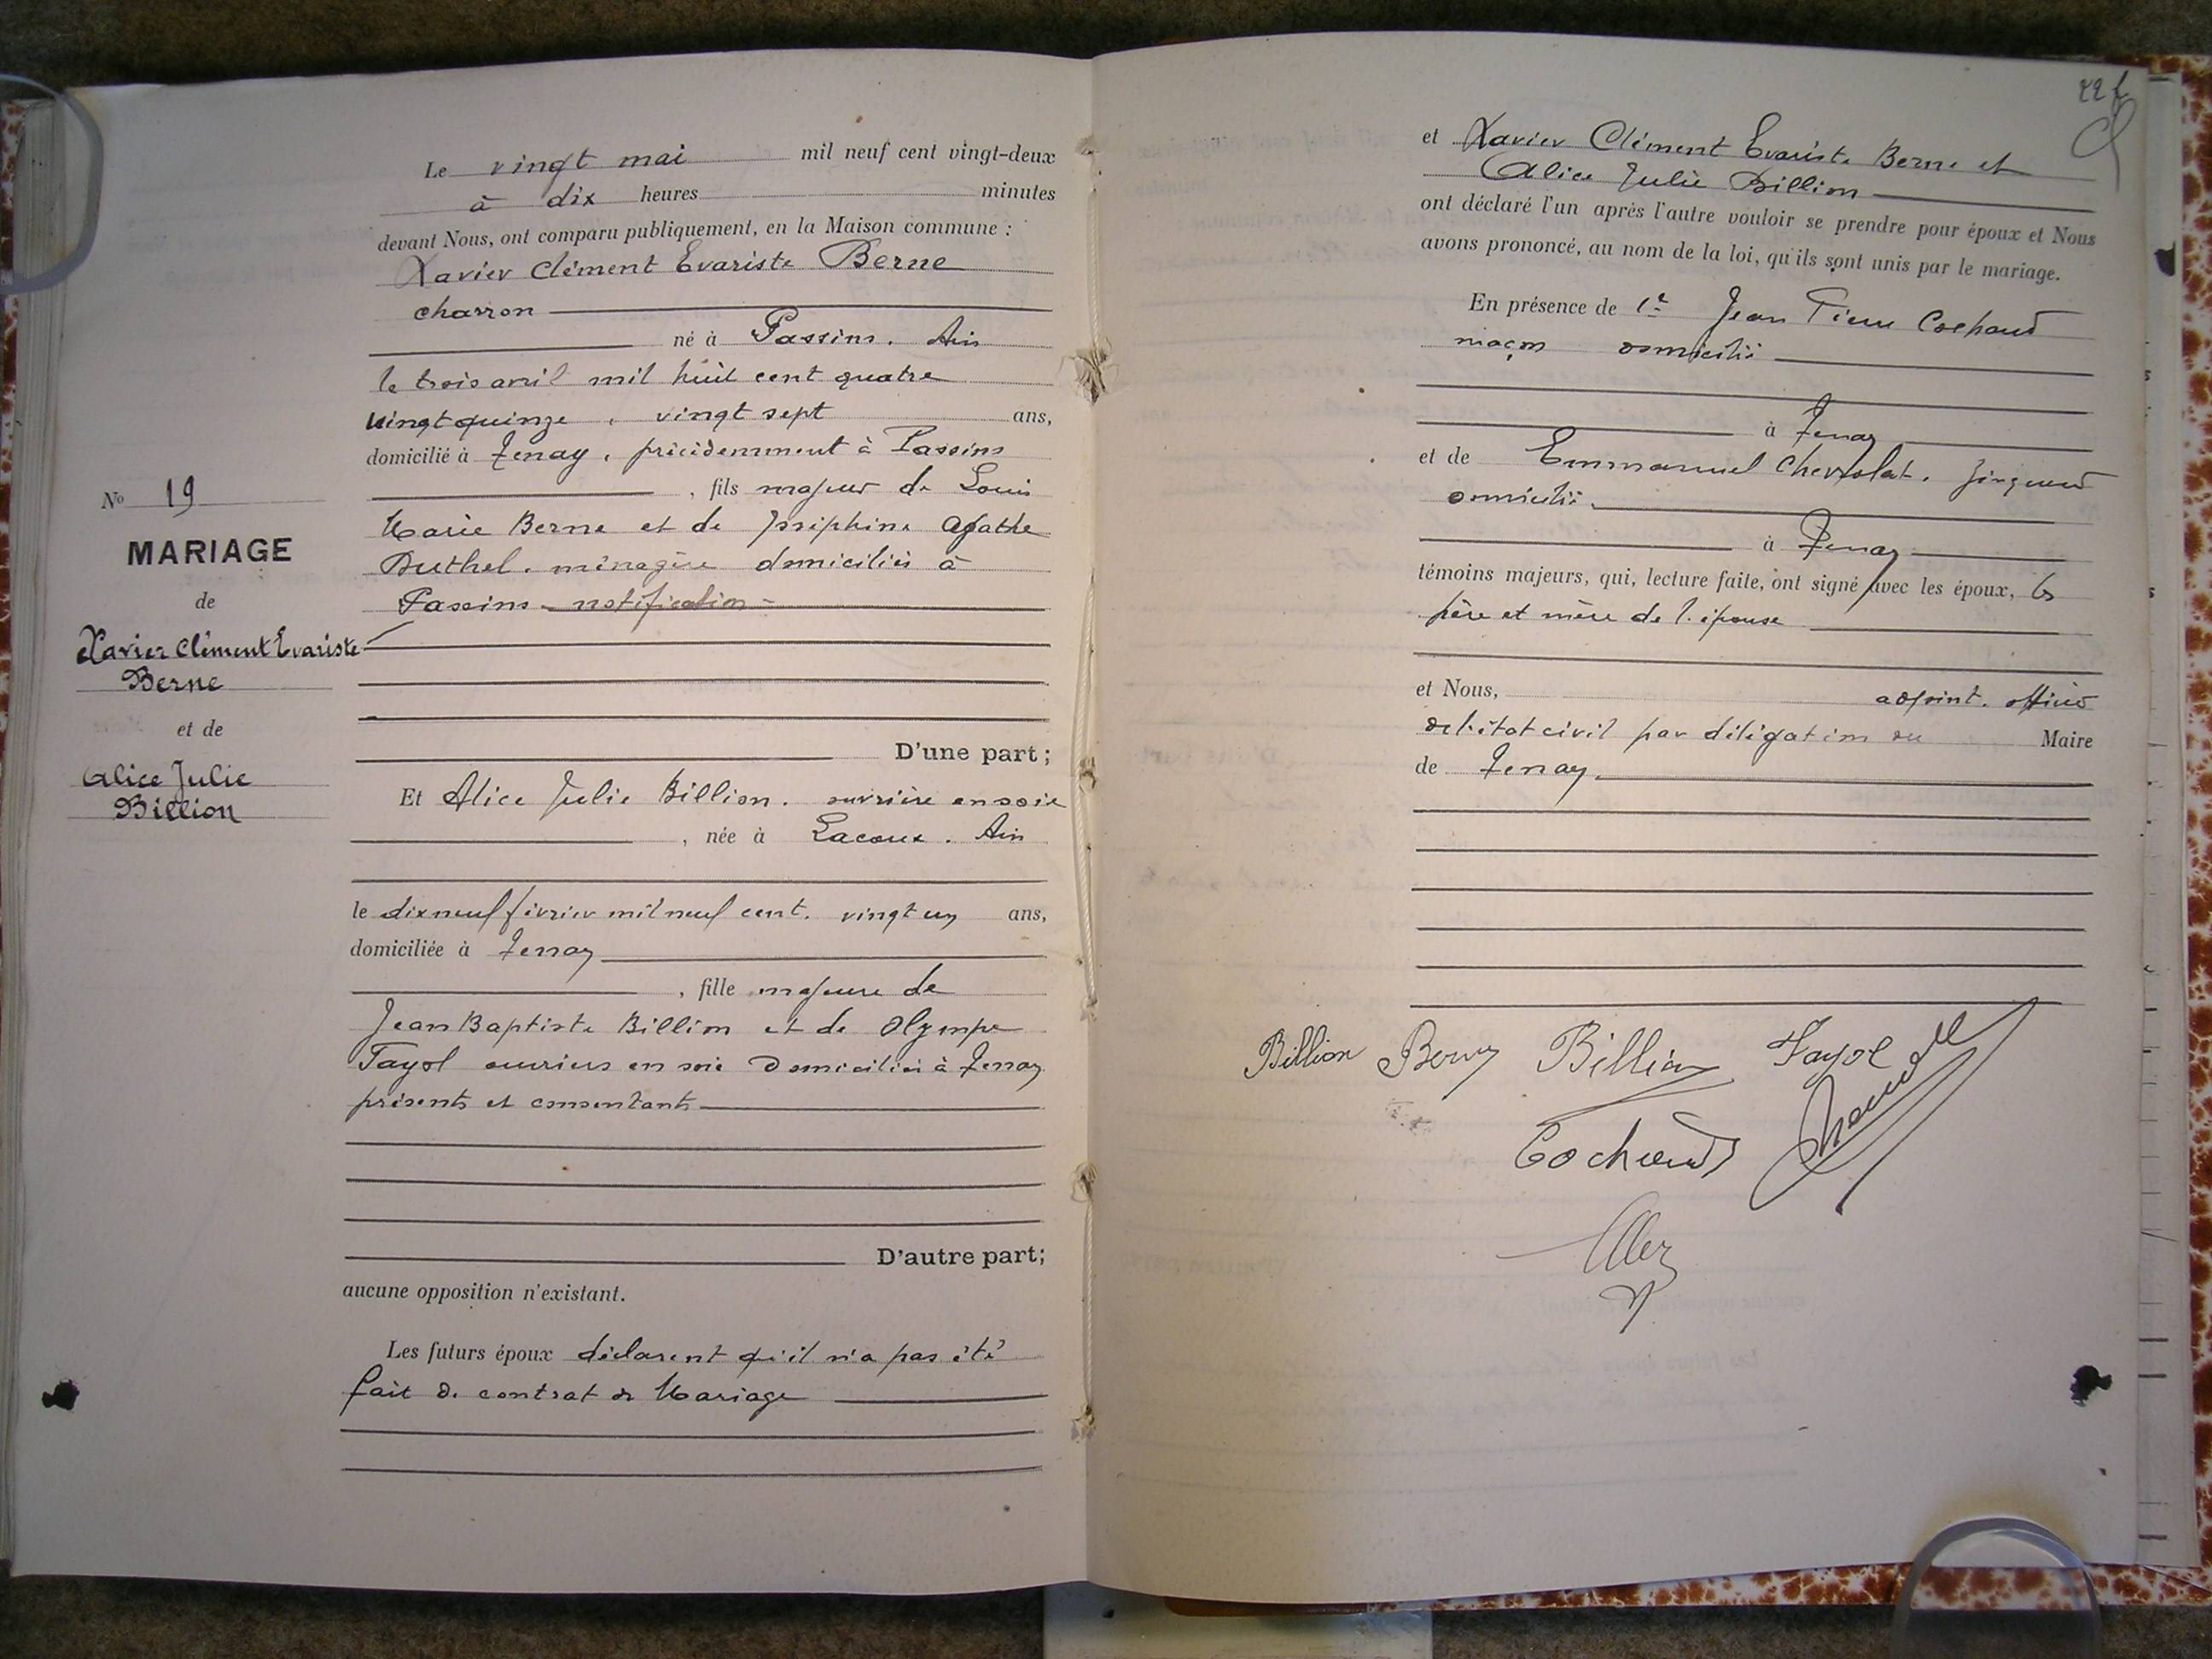 Le vingt mai mil neuf cent vingt-deux
à dix heures minutes
devant Nous, ont comparu publiquement, en la Maison commune :
Xavier Clément Evariste Berne
charron
né à Passins. Ain
le trois avril mil huit cent quatre
vingt quinze, vingt sept ans,
domicilié à Tenay, précédemment à Passins
, fils majeur de Louis
Marie Berne et de Joséphine Agathe
Duthel. ménagère domiciliés à
Passins notification
D'une part;
Et Alice Julie Billion. ouvrière en soie
, née à Lacoux. Ain
le dix neuf février mil neuf cent. vingt un ans,
domiciliée à Tenay
, fille majeure de
Jean Baptiste Billion et de Olympe
Fayol ouvriers en soie Domiciliés à Tenay
présents et consentants
D'autre part;
aucune opposition n'existant.
Les futurs époux déclarent qu'il n'a pas été
fait de contrat de Mariage
No 19
MARIAGE
de
Xavier Clément Evariste
Berne
et de
Alice Julie
Billion
et Xavier Clément Evariste Berne et
Alice Julie Billion
ont déclaré l'un après l'autre vouloir se prendre pour époux et Nous
avons prononcé, au nom de la loi, qu'ils sont unis par le mariage.
En présence de Jean Pierre Cochaud
maçon domicilié
à Tenay
et de Emmanuel zingueur
domicilié.
à Tenay
témoins majeurs, qui, lecture faite, ont signé avec les époux, les
père et mère de l'épouse
et Nous, adjoint. officier
de l'état civil par délégation du Maire
de Tenay.
Billion Berne Billion Fayol
Cochaud